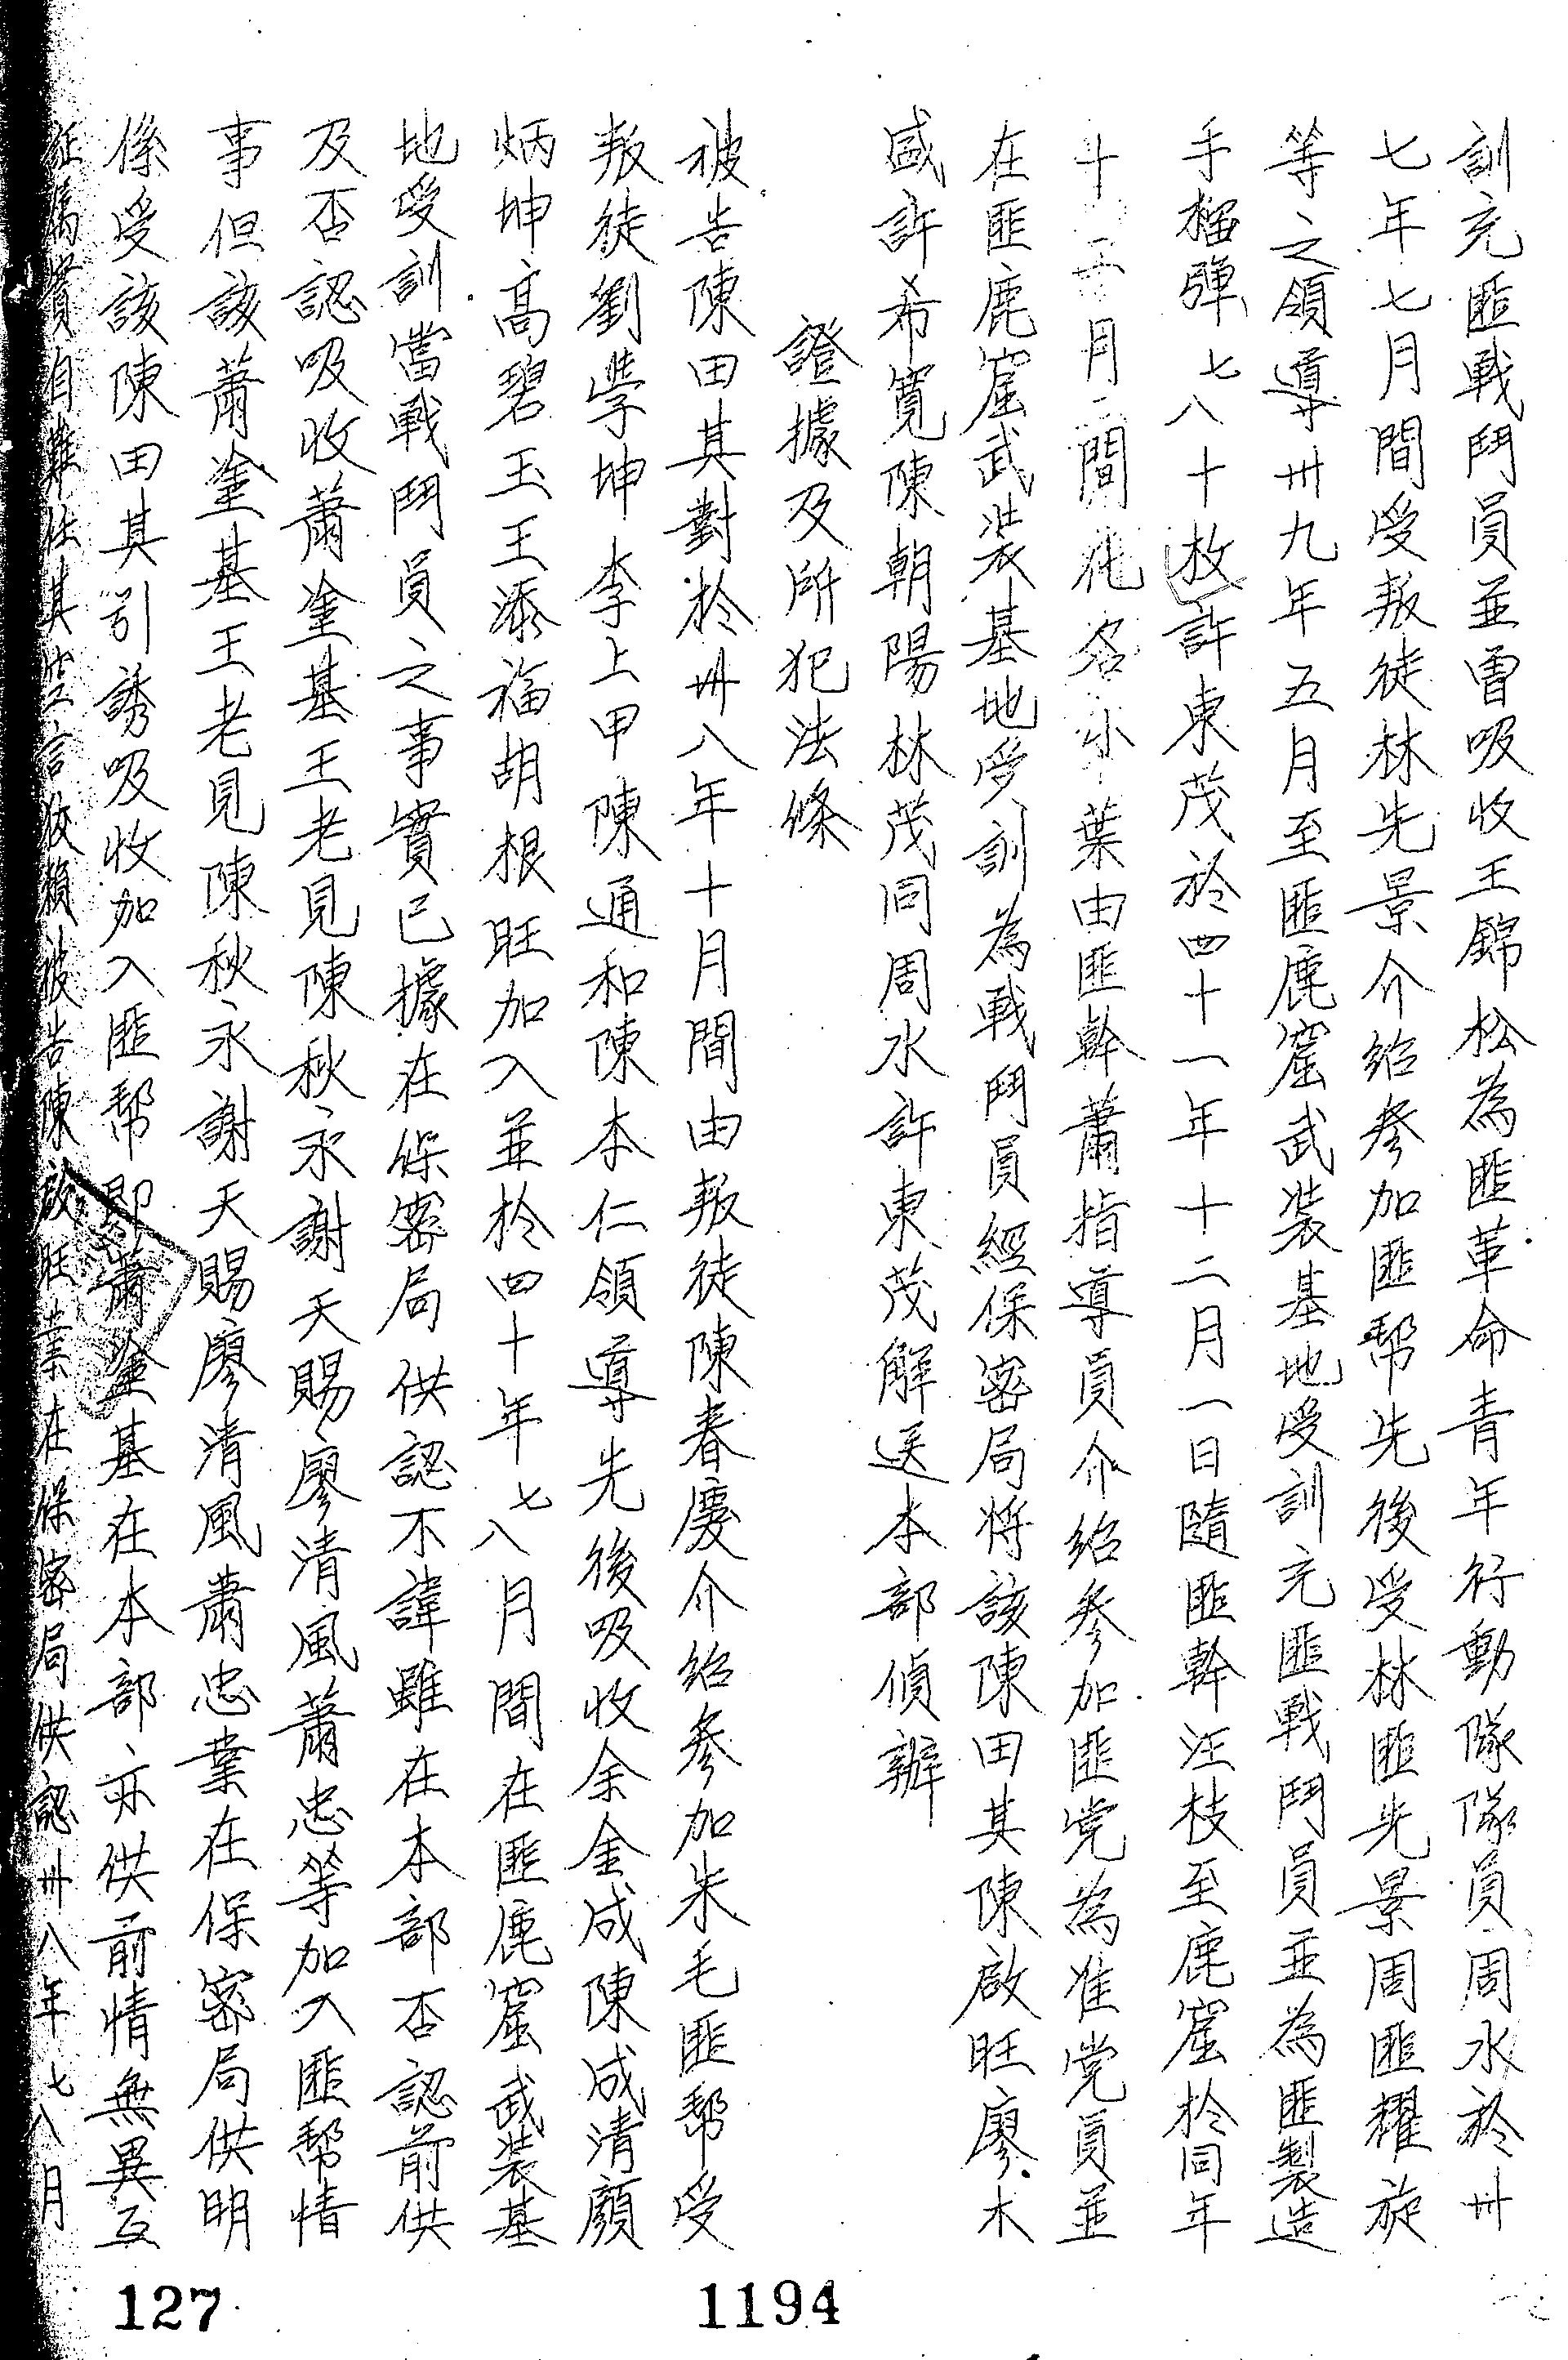 訓充匪戰鬥員並曾吸收王錦松為匪革命青年行動隊隊員周水於卅
七年七月間受叛徒林先景介紹參加匪幫先後受林匪先景周匪耀旋
等之領導卅九年五月至匪鹿窟武裝基地受訓充匪戰鬥員並為匪製造
手榴彈七八十枚許東茂於四十一年十二月一日隨匪幹汪枝至鹿窟於同年
十二月二間化名小葉由匪幹蕭指導員介紹參加匪党為准党員並
在匪鹿窟武裝基地受訓為戰鬥員經保密局將該陳田其陳啟旺廖木
盛許希寬陳朝陽林茂同周水許東茂解送本部偵辦
證據及所犯法條
被告陳田其對於卅八年十月間由叛徒陳春慶介紹參加朱毛匪幫受
叛徒劉學坤李上甲陳通和陳本仁領導先後吸收余金成陳成清顏
炳坤高碧玉王添福胡根旺加入並於四十年七八月間在匪鹿窟武裝基
地受訓當戰鬥員之事實已據在保密局供認不諱雖在本部否認前供
及否認吸收蕭塗基王老見陳秋永謝天賜廖清風蕭忠等加入匪幫情
事但該蕭塗基王老見陳秋永謝天賜廖清風蕭忠業在保密局供明
係受該陳田其引誘吸收加入匪幫即蕭塗基在本部亦供前情無異互
證屬實自難任其空言狡賴被告陳啟旺業在保密局供認卅八年七八月
127
1194